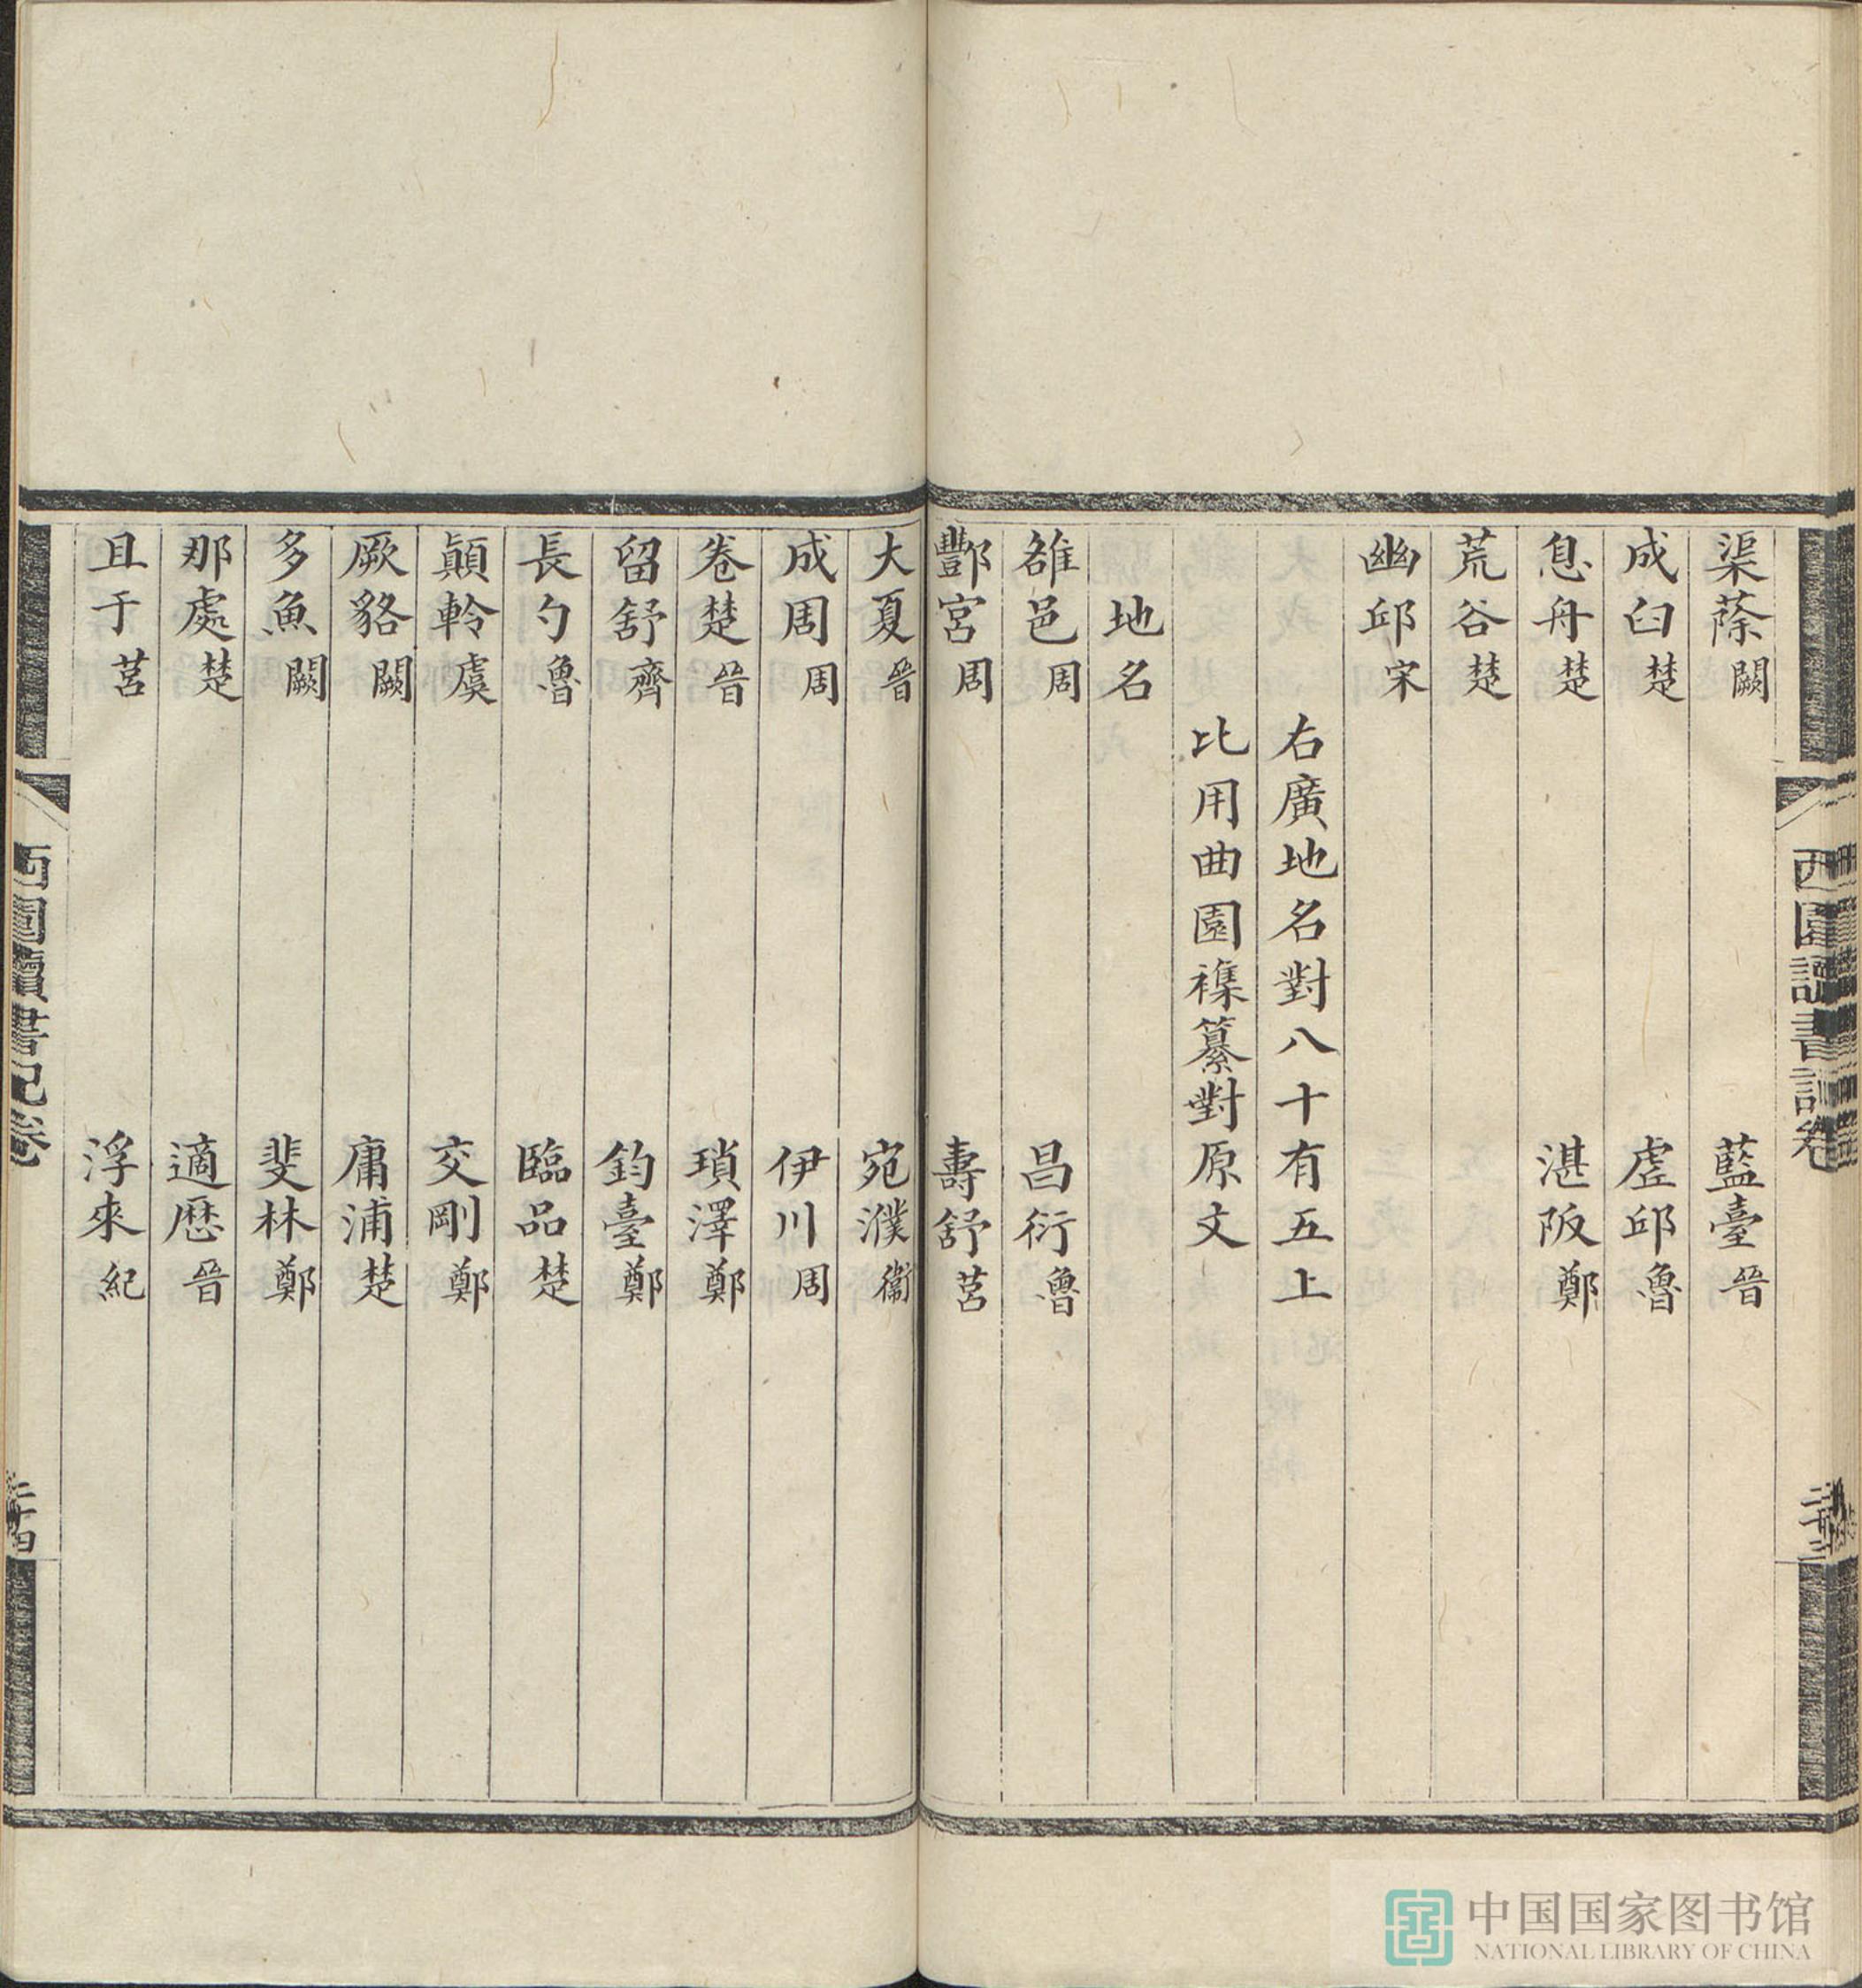 渠蒢闕 藍臺晉
成臼楚 虛邱魯
息舟楚 湛阪鄭
荒谷楚
幽邱宋
右廣地名對八十有五上
比用曲園襍纂對原文
地名
雒邑周 昌衍魯
酆宮周 壽舒莒
西園讀書記卷
二十三
大夏晉 宛濮衞
成周周 伊川周
卷楚晉 瑣澤鄭
留舒齊 鈞臺鄭
長勺魯 臨品楚
顚軨虞 交剛鄭
厥貉闕 庸浦楚
多魚闕 斐林鄭
那處楚 適厯晉
且于莒 浮來紀
西園讀書記卷
二十四
中国国家图书馆
NATIONAL LIBRARY OF CHINA